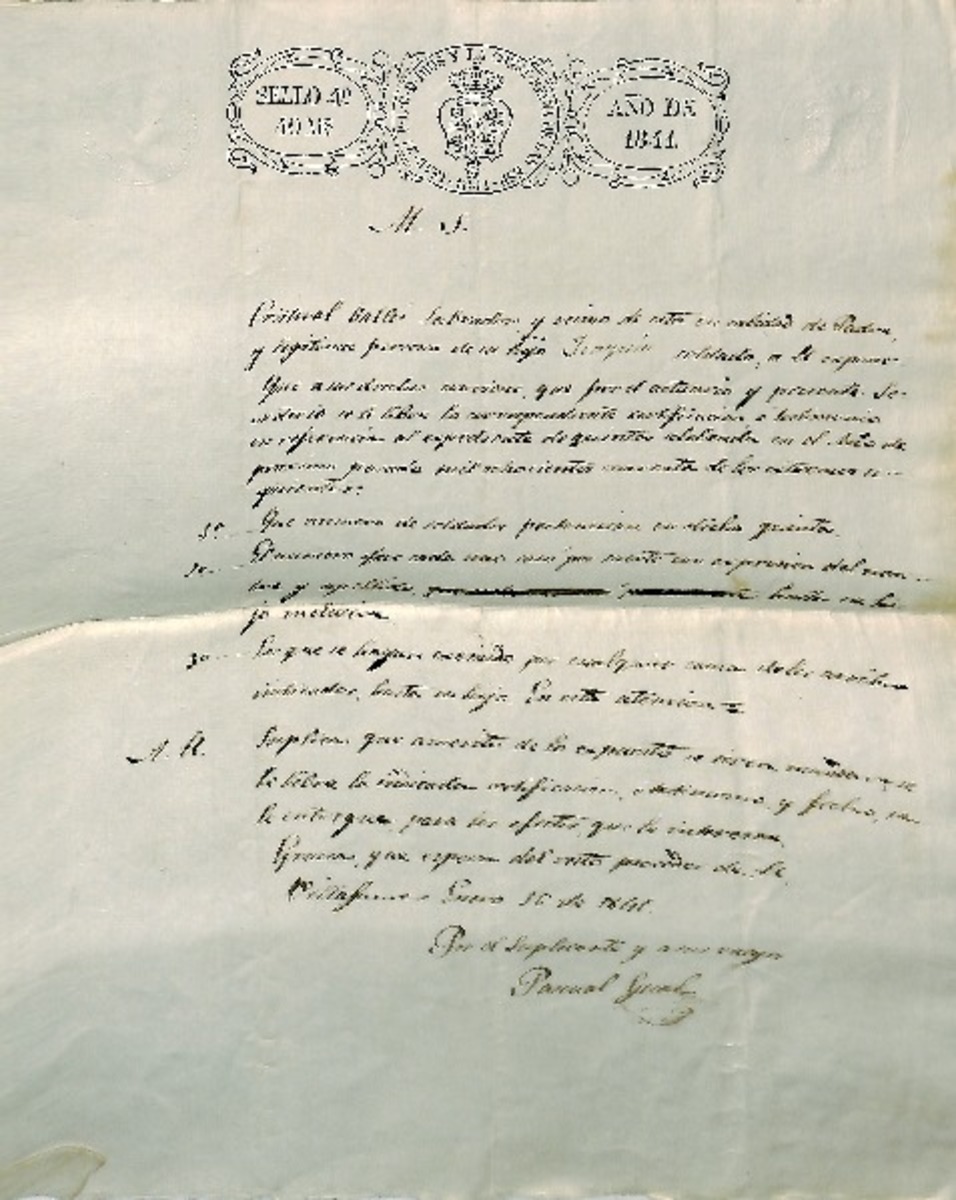 SELLO 4º
40 MS
AÑO DE
1841.
M. S.
Cristoval Valles Labrador y vecino de esta en calidad de Padre,
y legitima persona de su hijo Joaquin soldado, a S. expone
Que a su derecho conviene, que por el actuario y presente Se-
cretario se le libre la correspondiente certificacion o testimonio
en referencia al expediente de quintas celebrada en el
proximo pasado mil ochocientos cuarenta de los estremos si-
guientes:
1º Que numero de soldados pertenecieron en dicha quinta.
2º El numero que cada uno con expresion del nom-
bre y apellido, hasta su hi-
jo inclusive.
3º Los que se hayan eximido por cualquier causa de los numeros
indicados, hasta su hijo. En esta atencion =
A. S. Suplica que en merito de lo expuesto se sirva mandar que se
le libre la indicada certificacion, o testimonio, y fecho, se
le entregue para los efectos que le interesan.
Gracia, que espera del recto proceder de S.
Villafames Enero 16 de 1841.
Por el Suplicante y a su ruego
Pascual